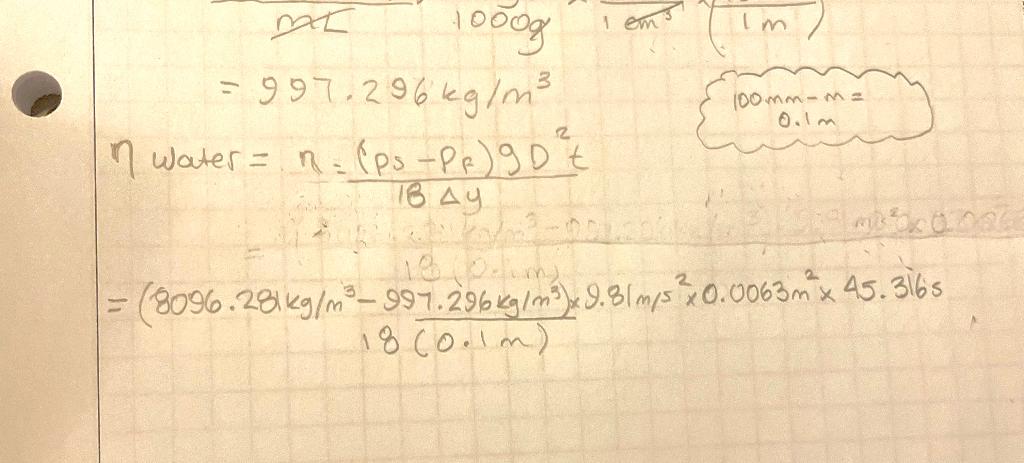 mL 1000g 1 cm³ ( 1m )
= 997.296 kg/m³
100mm - m =
0.1m
η water = η = (ρs - ρf) g D² t
18 Δy
=
18 (0.1m)
= (8096.281kg/m³ - 997.296kg/m³) x 9.81m/s² x 0.0063m² x 45.316s
18 (0.1m)